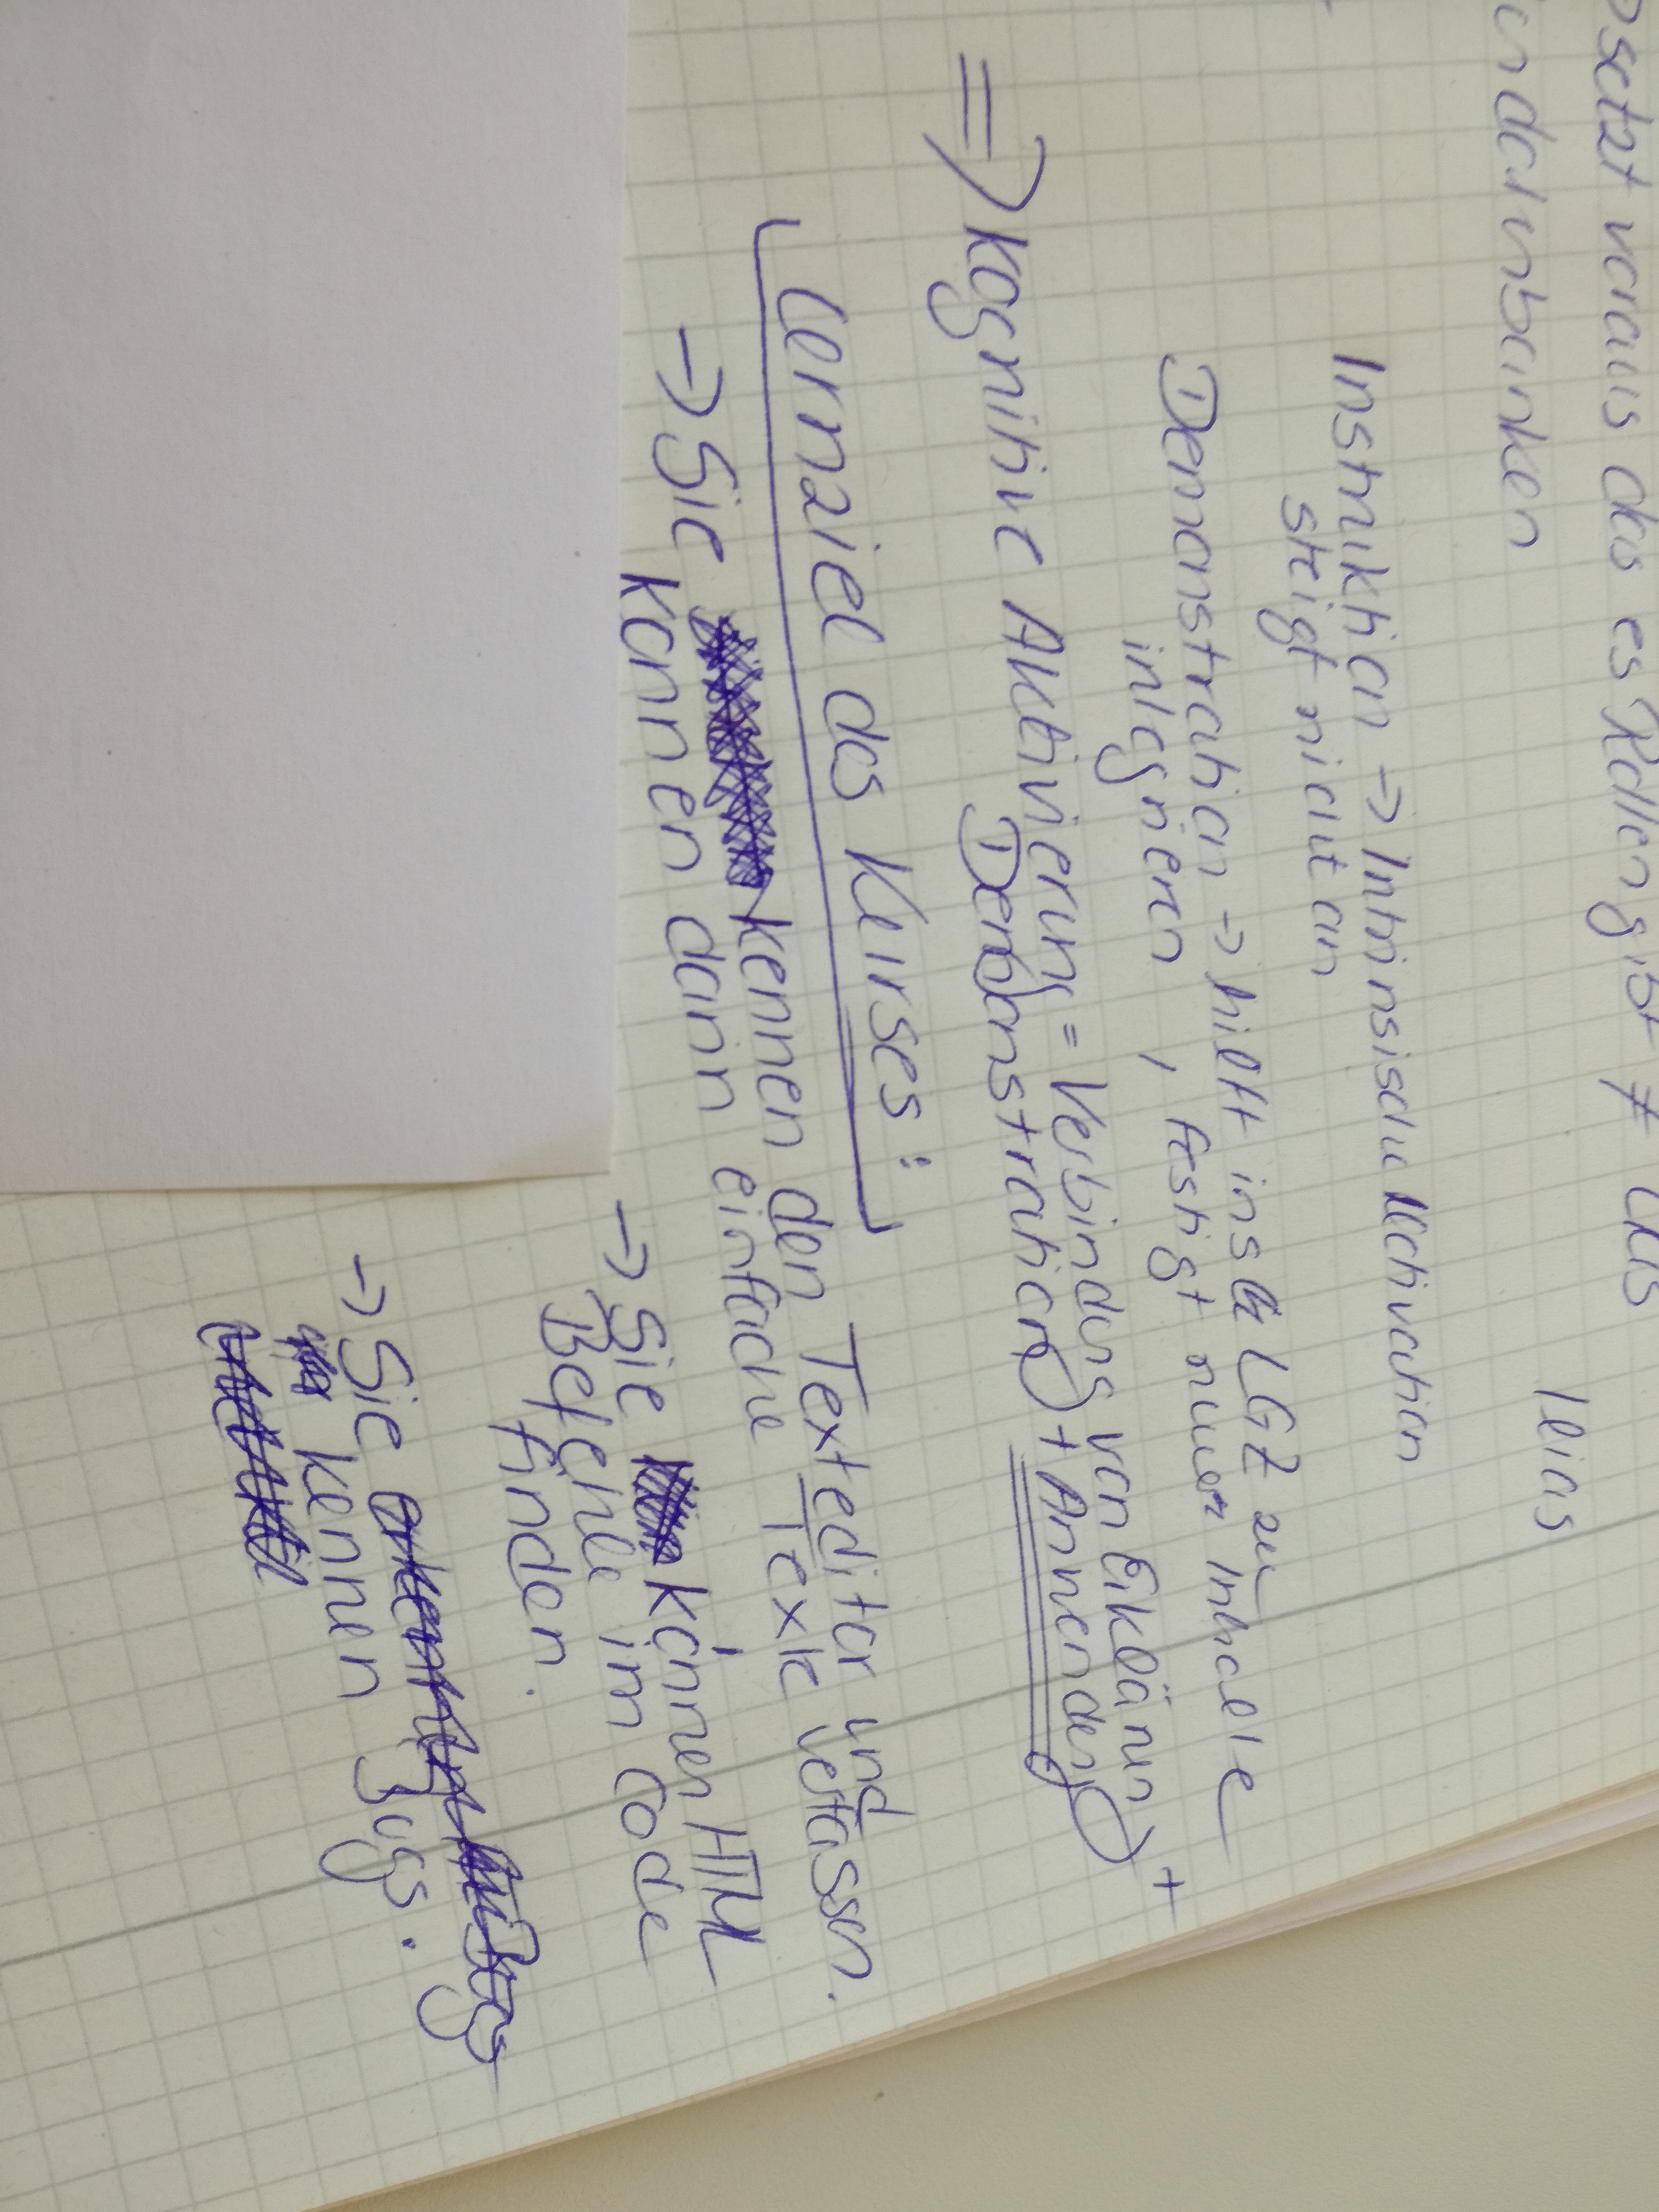 setzt voraus das es Regeln gibt ≠ das
Ilias
in den
Instruktion → Intrinsische Motivation
steigt nicht an
Demonstration → hilft ins LGZ zu
integrieren, festigt neue Inhalte
⇒ Kognitive Aktivierung = Verbindung von Erklärung +
Demonstration + Anwendung
Lernziel des Kurses:
→ Sie kennen den Texteditor und
können dann einfache Texte verfassen.
→ Sie können HTML
Befehle im Code
finden.
→ Sie
kennen